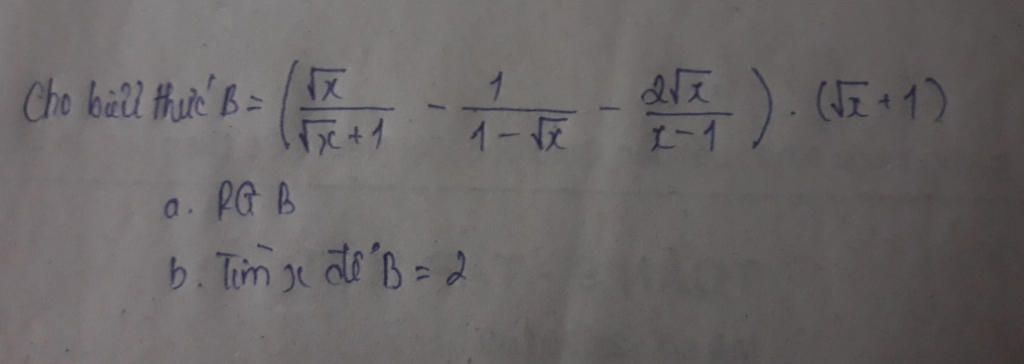 Cho biểu thức B = (√x / (√x + 1) - 1 / (1 - √x) - 2√x / (x - 1)) . (√x + 1)
a. RG B
b. Tìm x để B = 2